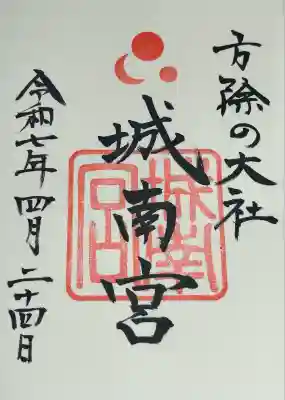 方除の大社
城南宮
城南宮
令和七年四月二十四日